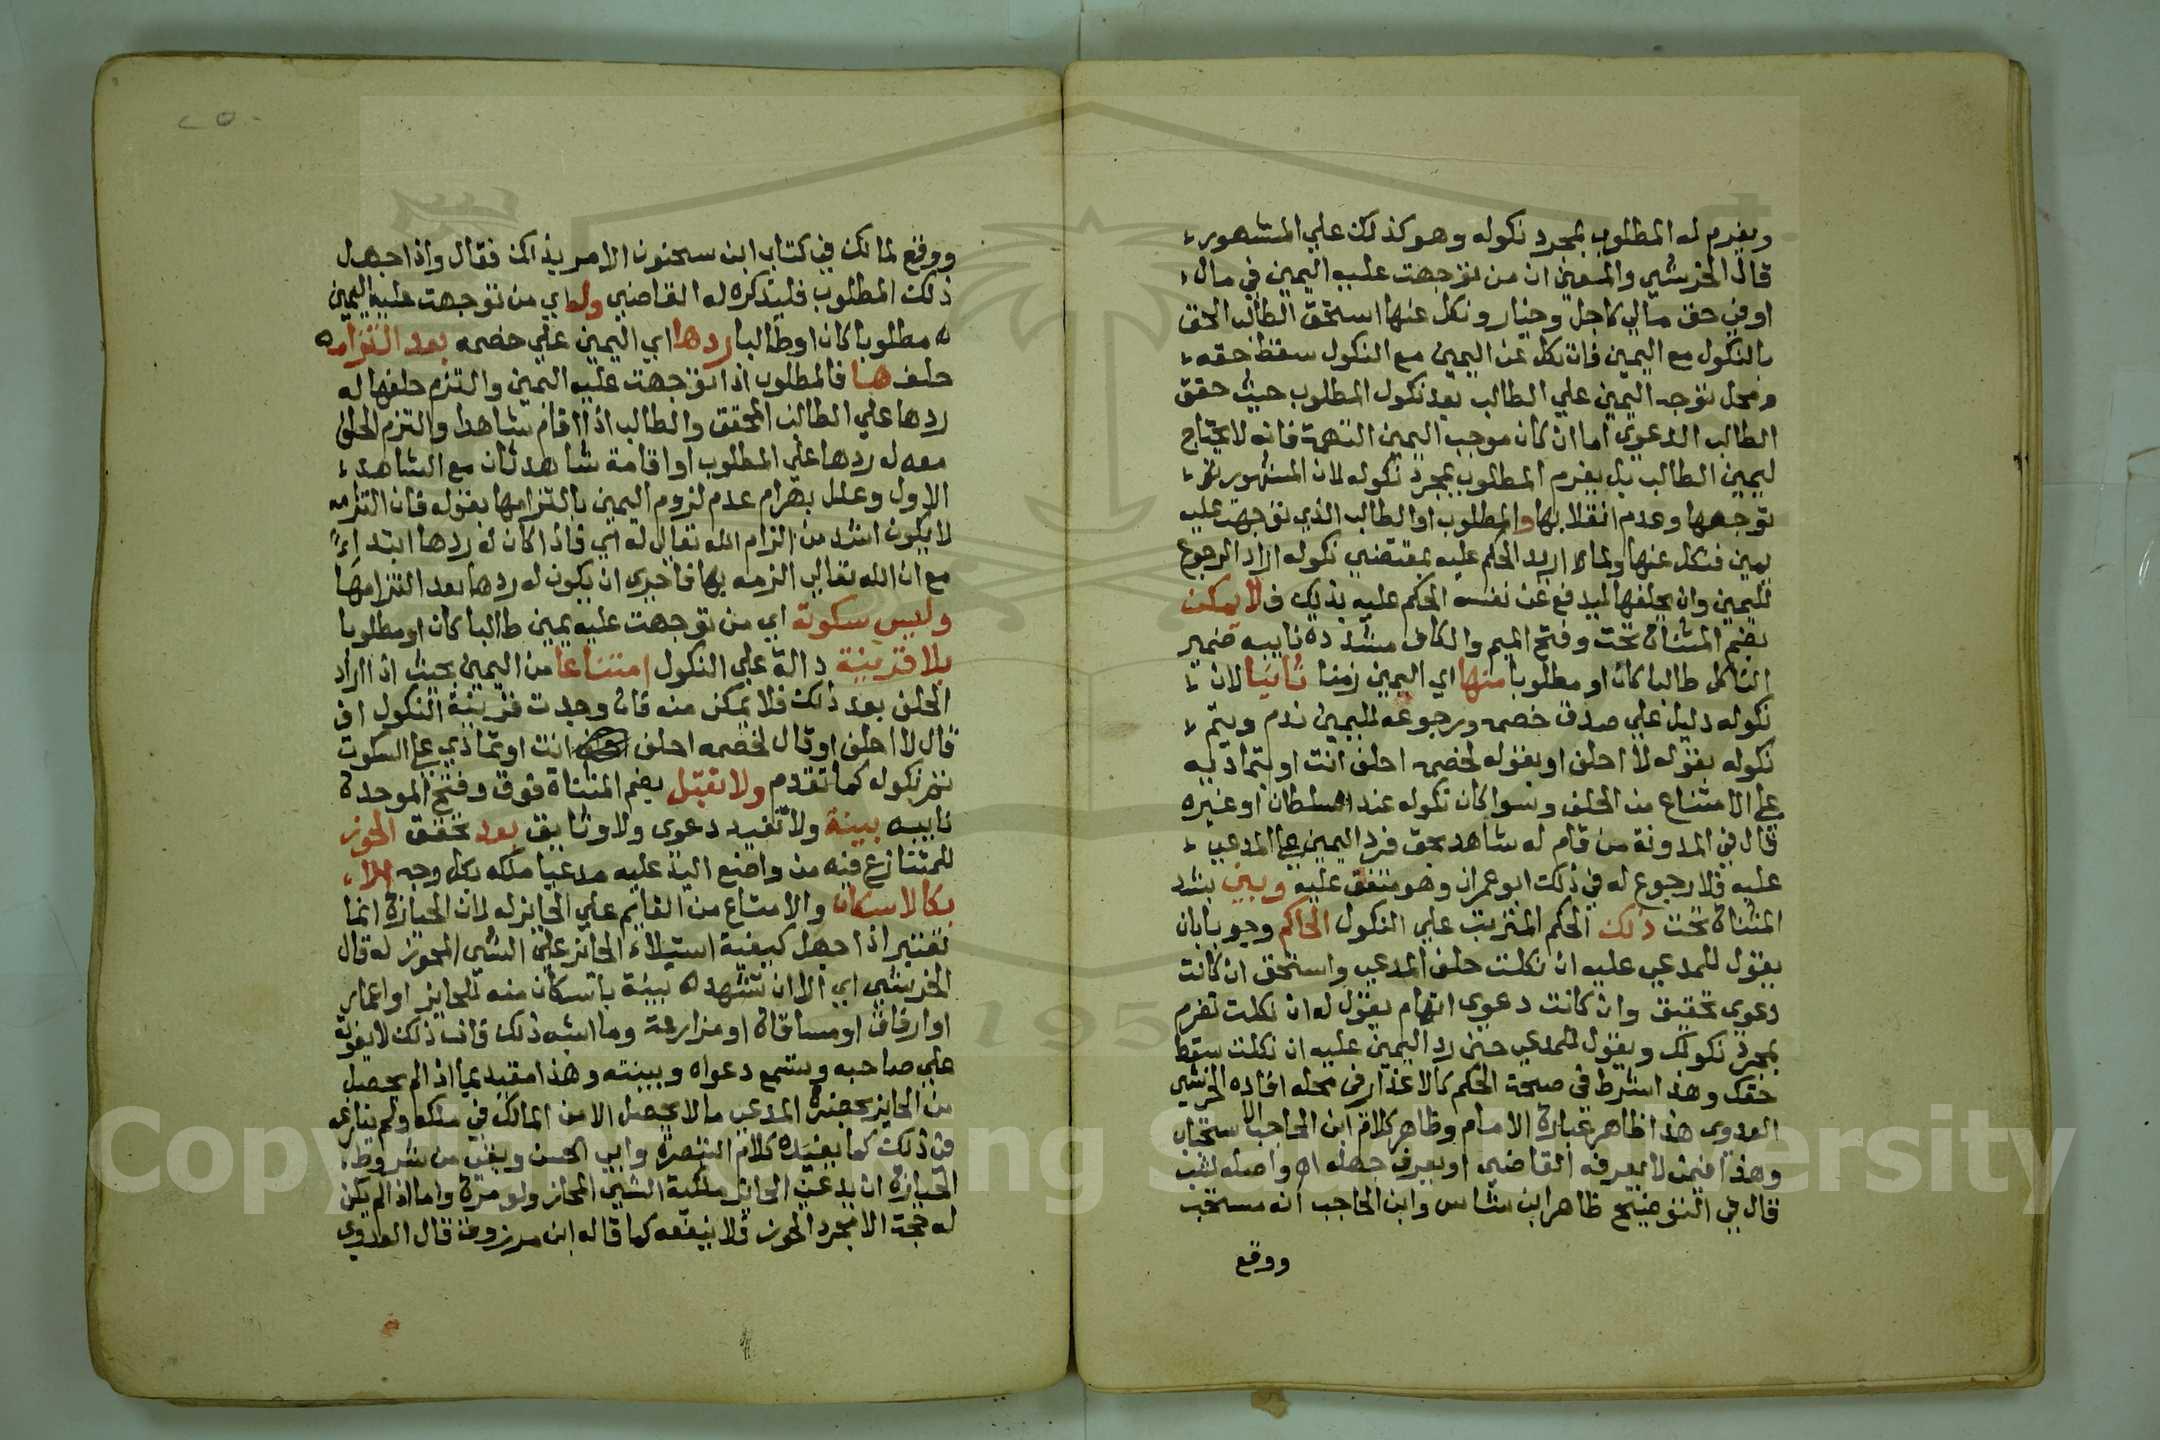 ويغرم له المطلوب بمجرد نكوله وهو كذلك علي المشهور
قال الخرشي والمعني ان من توجهت عليه اليمين في مال
او في حق مالي كاجل وخيار ونكل عنها استحق الطالب الحق
بالنكول مع اليمين فان نكل عن اليمين مع النكول سقط حقه
ومحل توجه اليمين علي الطالب بعد نكول المطلوب حيث حقق
الطالب الدعوي اما ان كان موجب اليمين التهمة فانه لا يحتاج
ليمين الطالب بل يغرم المطلوب بمجرد نكوله لان المشهور
توجهها وعدم انقلابها والمطلوب او الطالب الذي توجهت عليه
يمين فنكل عنها ولما اريد الحكم عليه بمقتضي نكوله اراد الرجوع
لليمين وان يحلفها ليدفع عن نفسه الحكم عليه بذلك فلا يمكن
بضم المثناة تحت وفتح الميم والكاف مشددة نايبه ضمير
الناكل طالبا كان او مطلوبا منها اي اليمين زمنا ثانيا لان
نكوله دليل علي صدق خصمه ورجوعه لليمين ندم ويتم
نكوله بقوله لا احلف او بقوله لخصمه احلف انت او بتماديه
علي الامتناع من الحلف وسوا كان نكوله عند السلطان او غيره
قال في المدونة من قام له شاهد بحق فرد اليمين علي المدعي
عليه فلا رجوع له في ذلك ابو عمران وهو متفق عليه وبين بشد
المثناة تحت ذلك الحكم المترتب علي النكول الحاكم وجوبا بان
يقول للمدعي عليه ان نكلت حلف المدعي واستحق ان كانت
دعوي تحقيق وان كانت دعوي اتهام يقول له ان نكلت تغرم
بمجرد نكولك ويقول للمدعي حين رد اليمين عليه ان نكلت سقط
حقك وهذا شرط في صحة الحكم كالاعذار في محله افاده الخرشي
العدوي هذا ظاهر عبارة الامام وظاهر كلام ابن الحاجب الاستحباب
وهذا فيمن لا يعرفه القاضي او يعرف جهله اه واصله لشب
قال في التوضيح ظاهر ابن شاس وابن الحاجب انه مستحب
ووقع
ووقع لمالك في كتاب ابن سحنون الامر بذلك فقال واذا جهل
ذلك المطلوب فليذكره له القاضي وله اي من توجهت عليه اليمين
مطلوبا كان او طالبا ردها اي اليمين علي خصمه بعد التزامه
حلفها فالمطلوب اذا توجهت عليه اليمين والتزم حلفها له
ردها علي الطالب المحقق والطالب اذا اقام شاهدا والتزم الحلف
معه له ردها علي المطلوب او اقامة شاهد ثان مع الشاهد
الاول وعلل بهرام عدم لزوم اليمين بالتزامها بقوله فان التزامه
لا يكون اشد من الزام الله تعالي له اي فاذا كان له ردها ابتداء
مع ان الله تعالي الزمه بها فاحري ان يكون له ردها بعد التزامها
وليس سكوته اي من توجهت عليه يمين طالبا كان او مطلوبا
بلا قرينة دالة علي النكول امتناعا من اليمين بحيث اذا اراد
الحلف بعد ذلك فلا يمكن منه فان وجدت قرينة النكول او
قال لا احلف او قال لخصمه احلف انت او تمادي علي السكوت
تم نكوله كما تقدم ولا تقبل بضم المثناة فوق وفتح الموحدة
نايبه بينة ولا تفيد دعوي ولا وثايق بعد تحقق الحوز
للمتنازع فيه من واضع اليد عليه مدعيا ملكه بكل وجه الا
بكالاسكان والامتاع من القايم علي الحايز له لان الحيازة انما
تعتبر اذا جهل كيفية استيلاء الحائز علي الشي المحوز له قال
الخرشي اي الا ان تشهد بينة باسكان منه للحايز او اعمار
او ارفاق او مساقاة او مزارعة وما اشبه ذلك فان ذلك لا يفوت
علي صاحبه وتسمع دعواه وبينته وهذا مقيد بما اذا لم يحصل
من الحايز بحضرة المدعي ما لا يحصل الا من المالك في ملكه ولم ينازعه
في ذلك كما يفيده كلام التبصرة وابي الحسن وبقي من شروط
الحيازة ان يدعي الحائز ملكية الشي المحاز ولو مرة واما اذا لم يكن
له حجة الا مجرد الحوز فلا ينفعه كما قاله ابن مرزوق قال العدوي